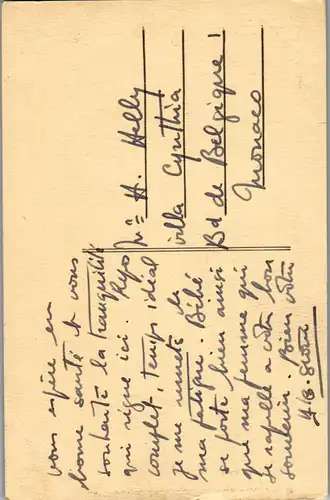 vous espère en
bonne santé et vous
souhaite la tranquilité
qui règne ici. Repos
complet, temps idéal
je me remets de
ma fatigue. Bébé
se porte bien ainsi
que ma femme qui
se rapelle a votre bon
souvenir. Bien votre
Mr H. Helly
villa Cynthia
Bd de Belgique 1
Monaco